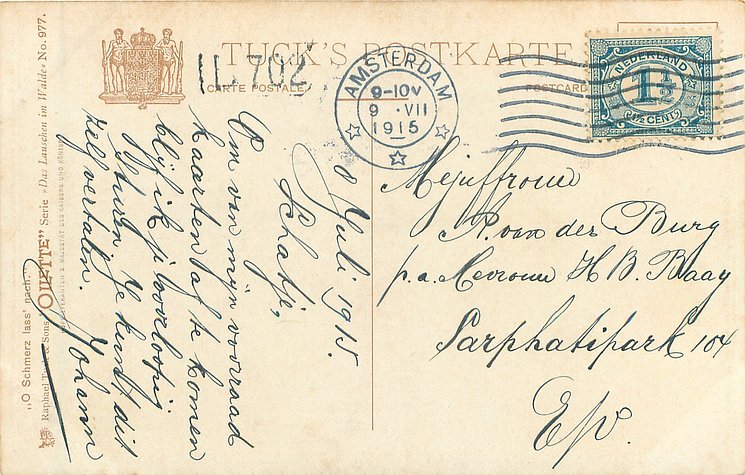 TUCK'S POSTKARTE
CARTE POSTALE
POSTCARD
11.702
AMSTERDAM
9-10V
9 .VII
1915
NEDERLAND
1½
(1½ CENT)
Juli 1915.
Schatje,
Om van mijn voorraad
kaarten af te komen
blijf ik je voorloopig
sturen. Je kunt dit
zelf vertalen. Johann
Mejuffrouw
A. van der Burg
p.a. Mevrouw H B. Baay
Sarphatipark 104
E/V.
„O Schmerz lass' nach."
Raphael Tuck & Sons „OILETTE" Serie »Das Lauschen im Walde« No. 977.